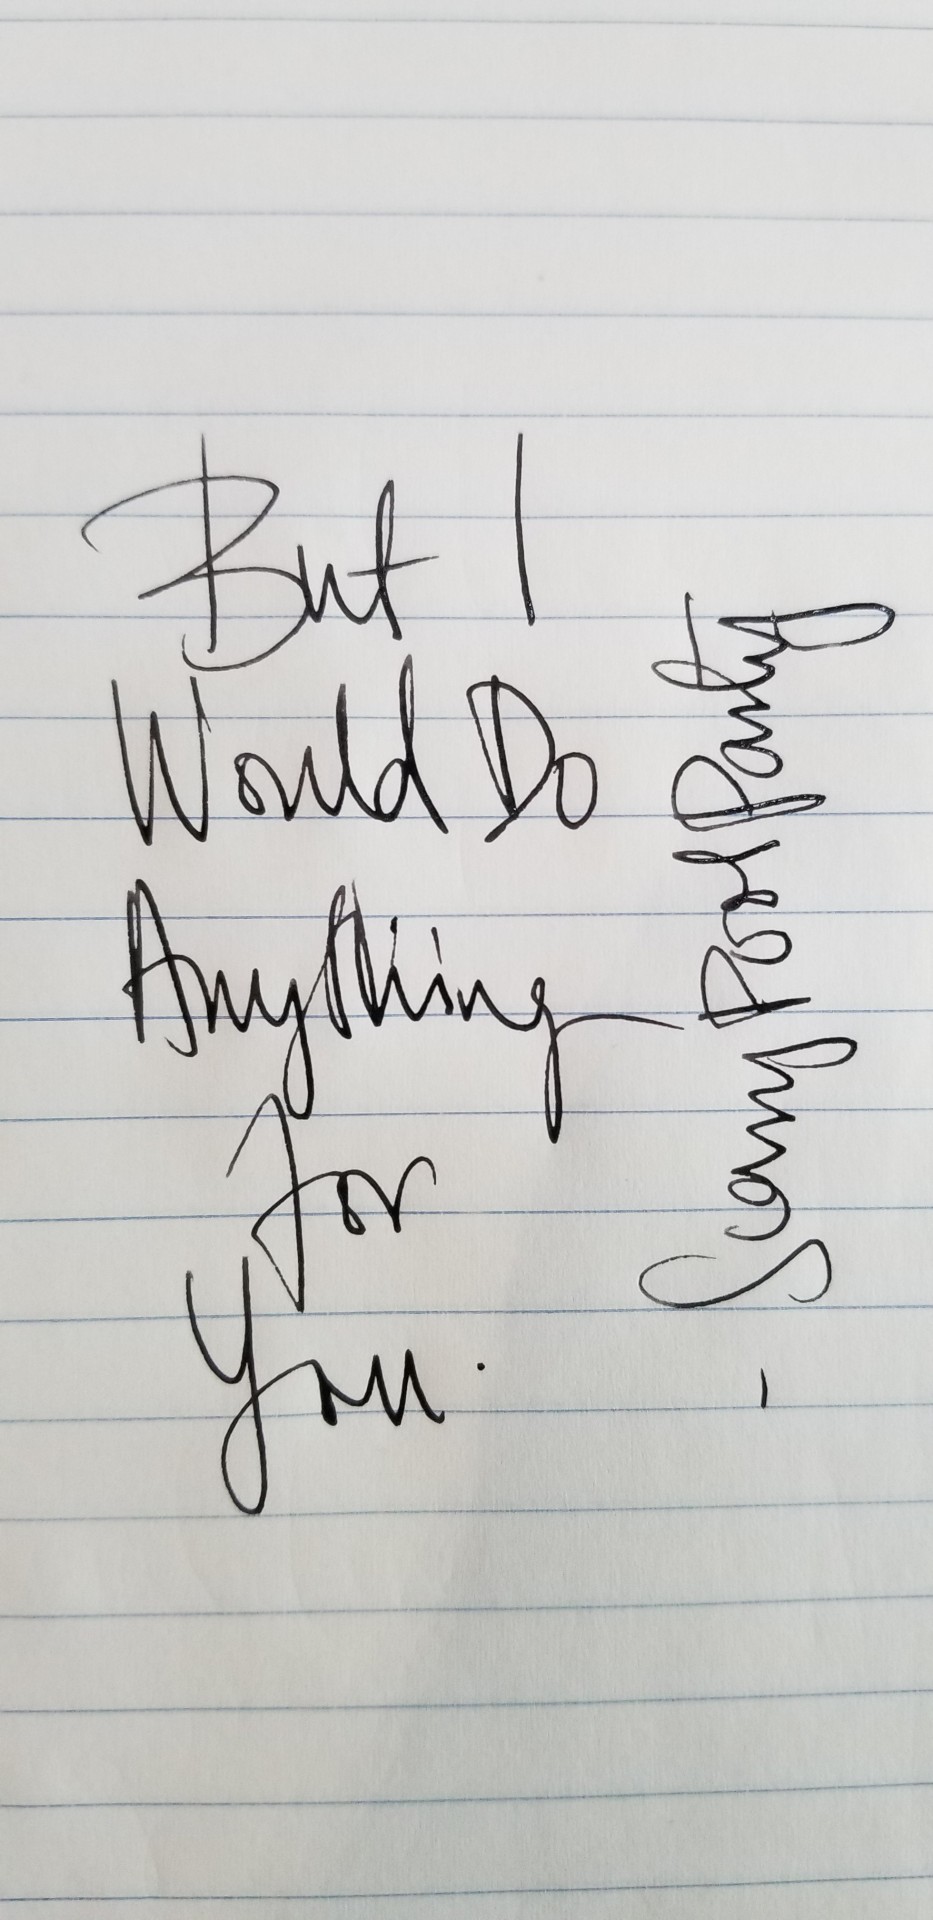 But I
Would Do
Anything
For
You.
- Scary Pool Party